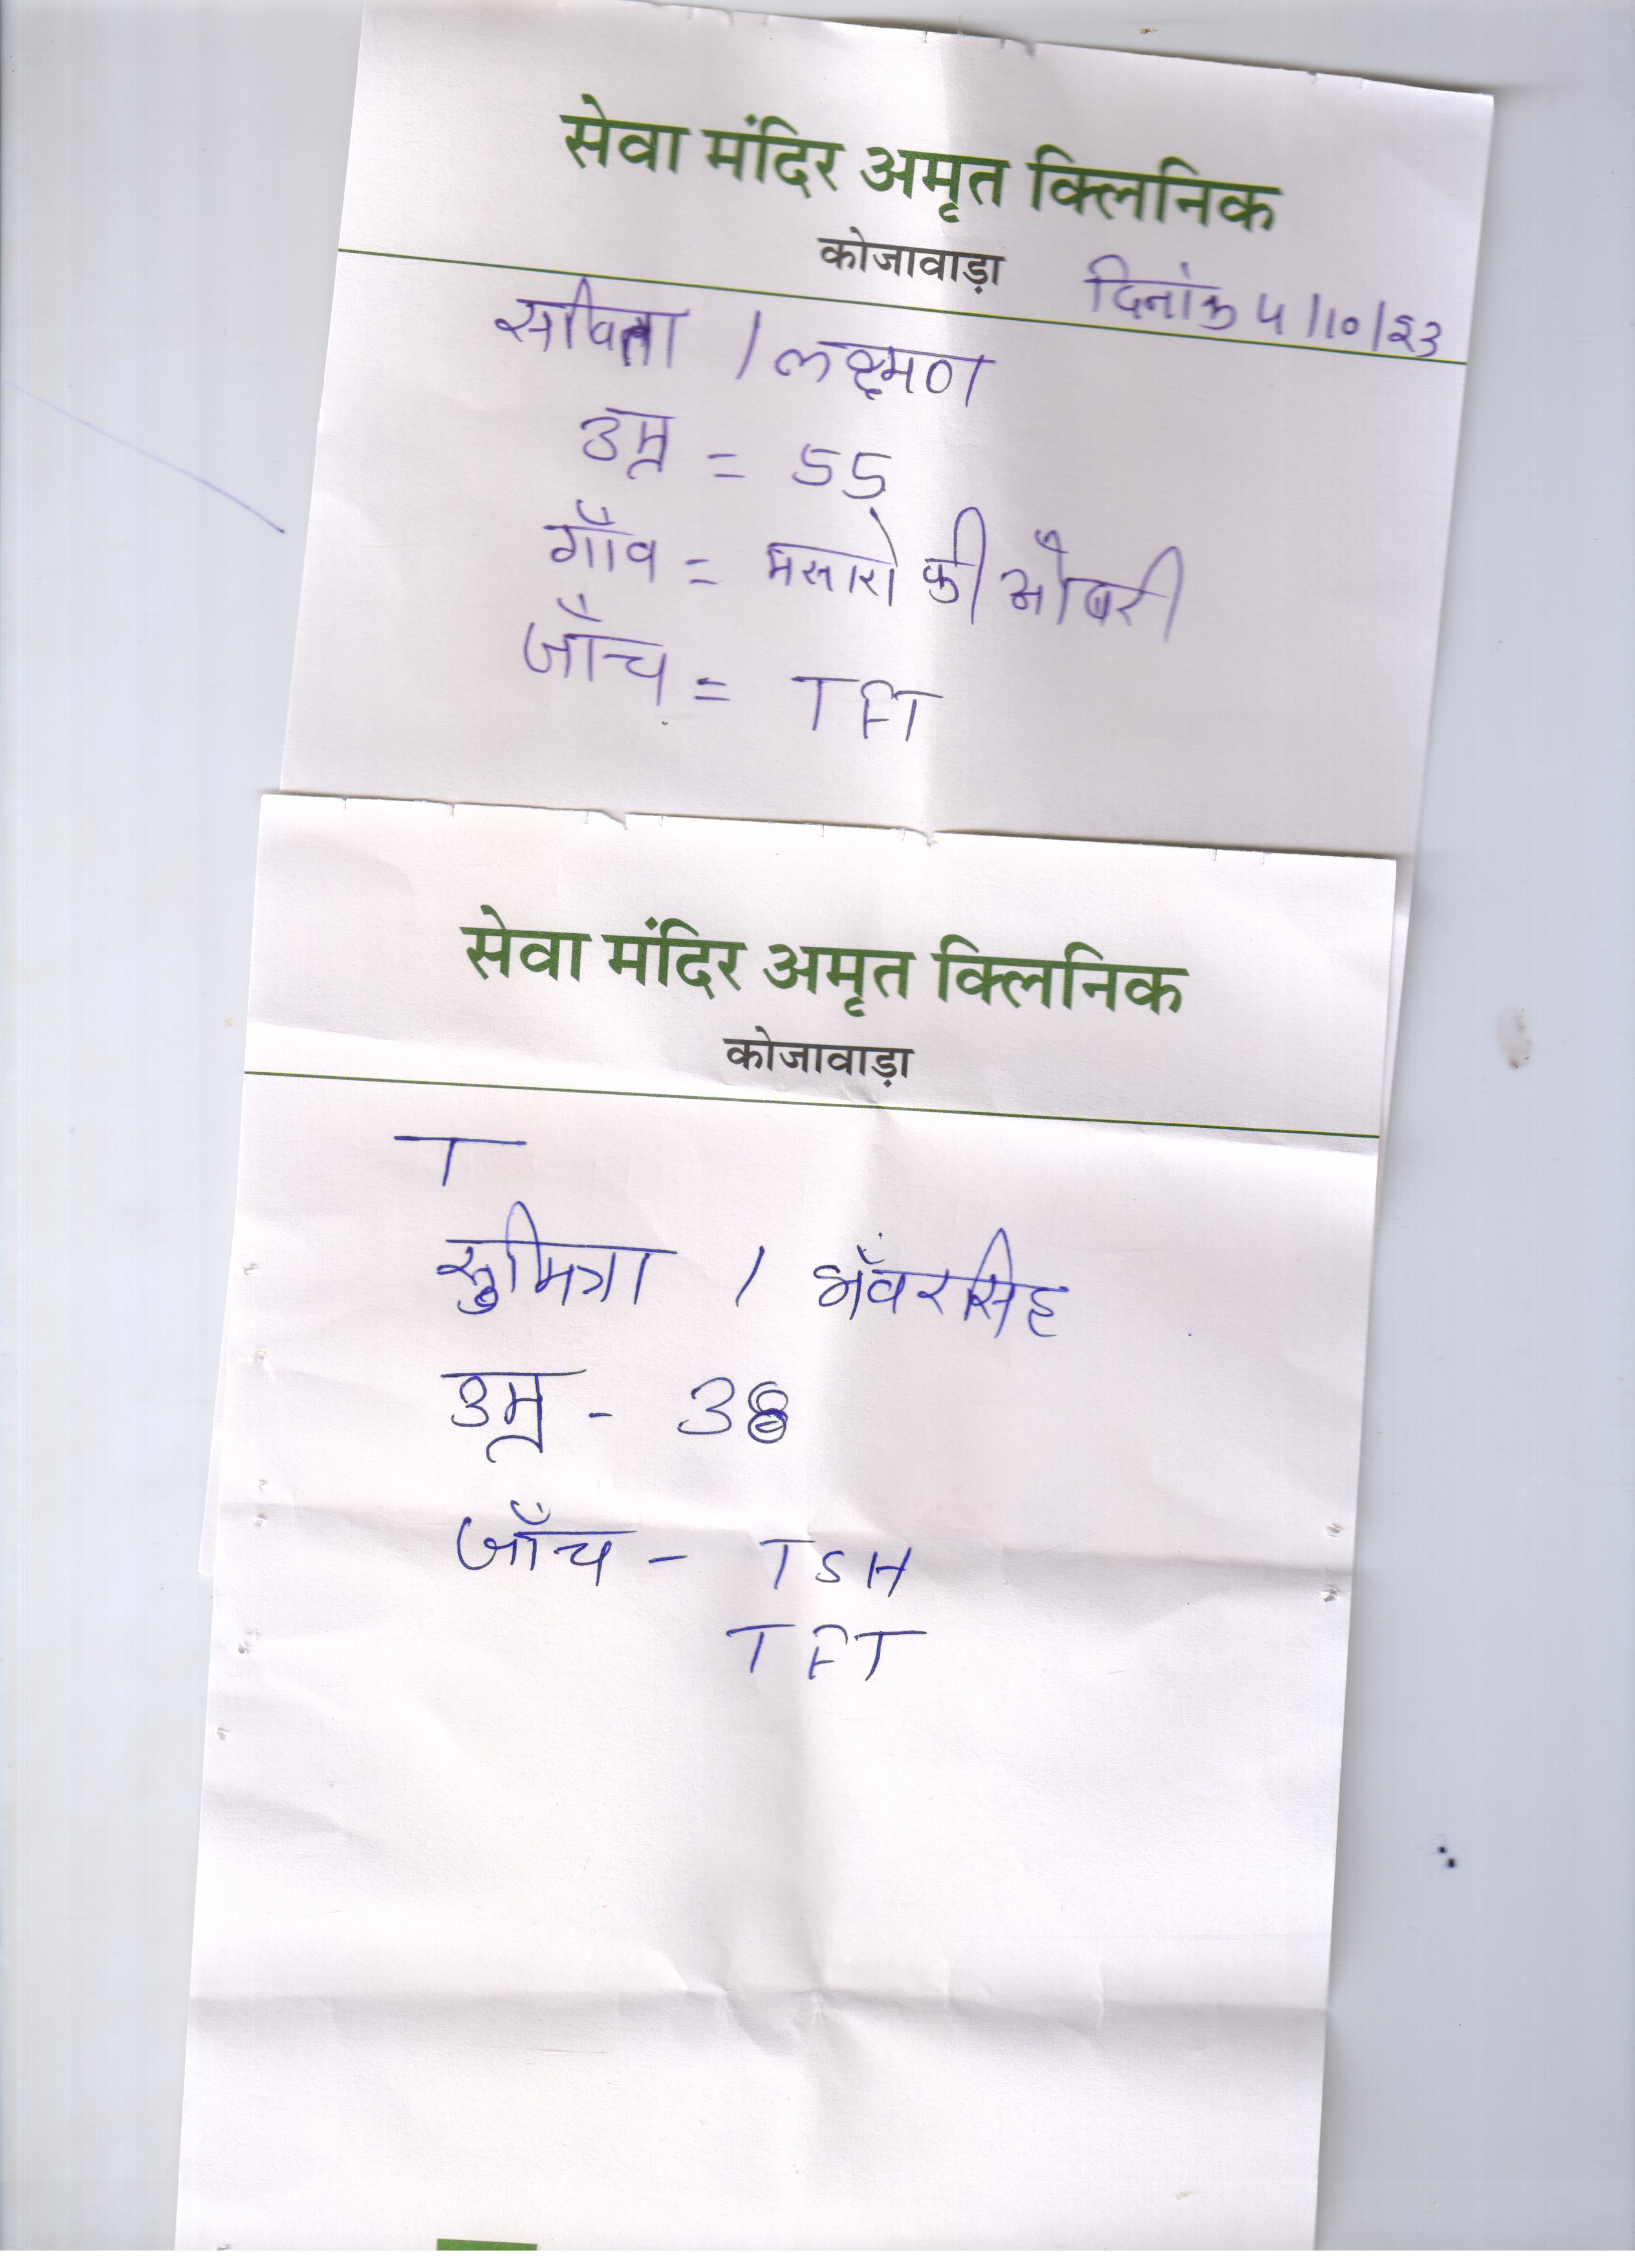 सेवा मंदिर अमृत क्लिनिक
कोजावाड़ा
दिनांक 4/10/23
सविता / लक्ष्मण
उम्र = 55
गाँव = मसारो की ओबरी
जाँच = TFT
सेवा मंदिर अमृत क्लिनिक
कोजावाड़ा
T
सुमित्रा / भँवरसिंह
उम्र - 38
जाँच - TSH
TFT